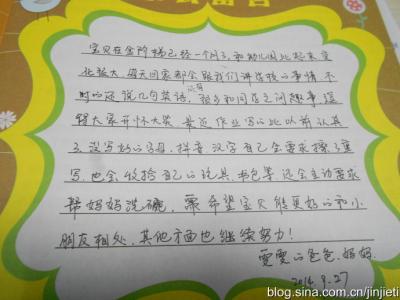 宝贝在金阶梯已经一个月了,和幼儿园比起来变
化挺大,每天回家都会跟我们讲学校的事情,不
时的还说几句英语,没有 和同学之间趣事逗
得大家开怀大笑,最近作业写的比以前认真
了,没写好的字母,拼音,汉字自己会要求擦了重
写,也会收拾自己的玩具,书包等,还会主动要求
帮妈妈洗碗,希望宝贝能更好的和小
朋友相处,其他方面也继续努力!
雯雯的爸爸.妈妈.
2014.9.27
blog.sina.com.cn/jinjieti